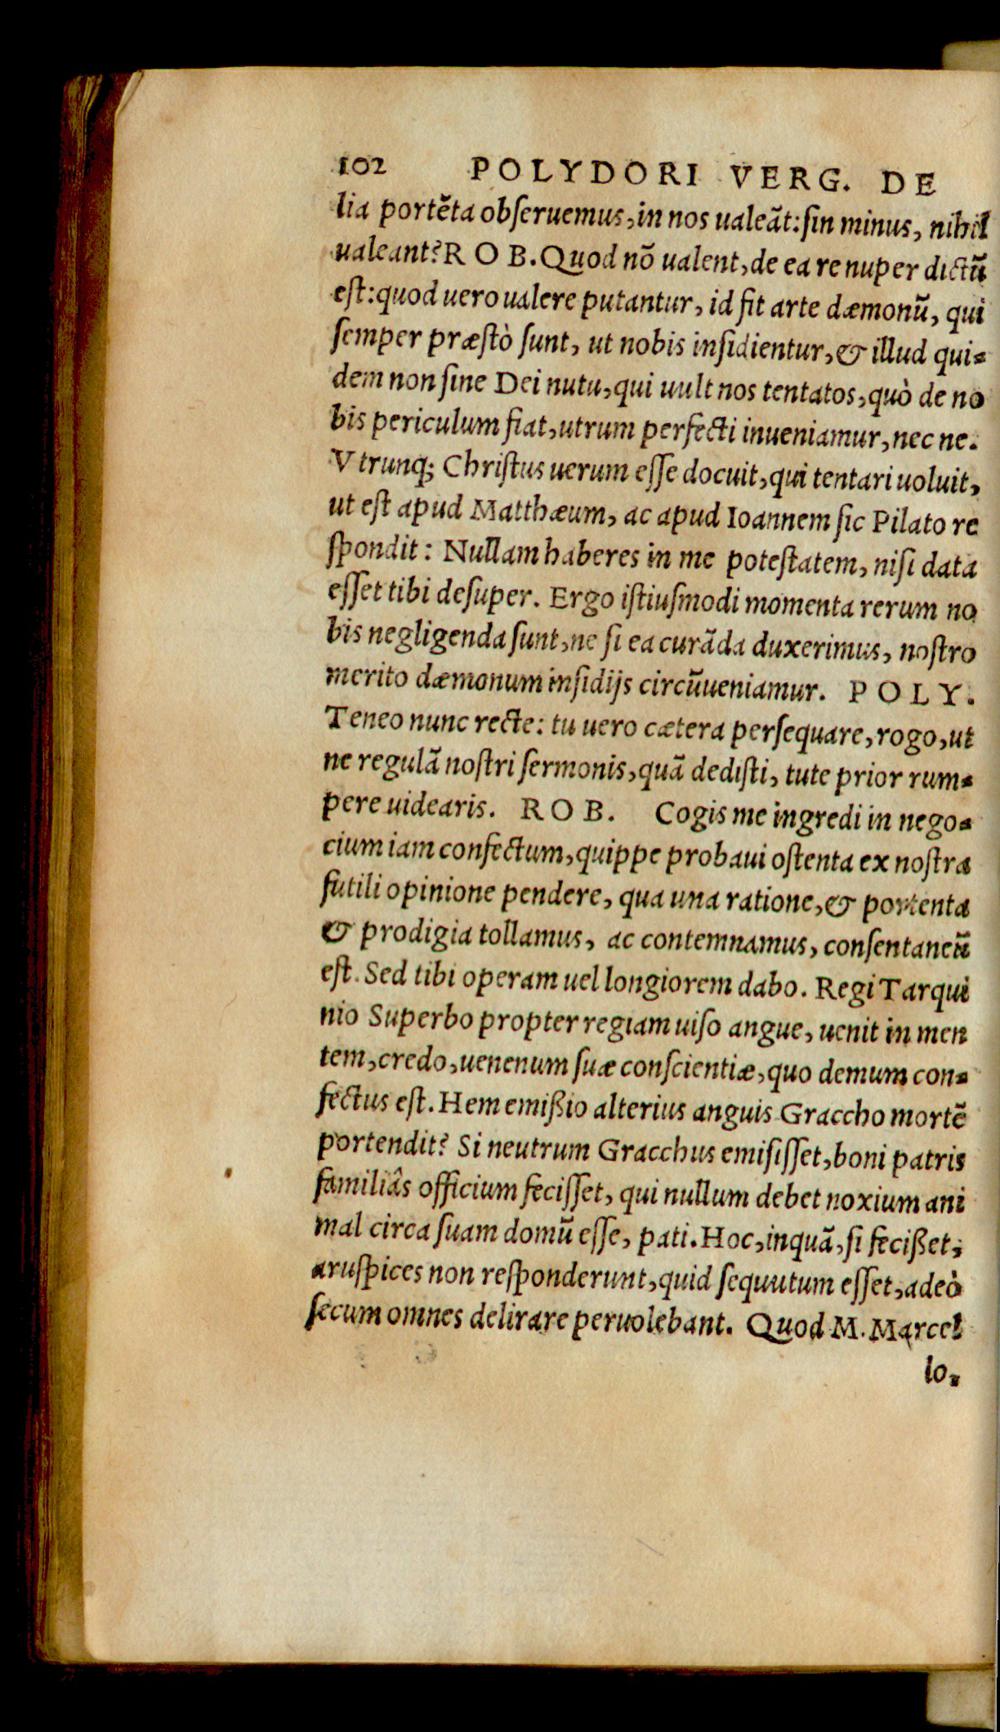 102 POLYDORI VERG. DE
lia portẽta obſeruemus, in nos ualeãt: ſin minus, nihil
ualeant? ROB. Quod nõ ualent, de ea re nuper dictũ
eſt: quod uero ualere putantur, id fit arte dæmonũ, qui
ſemper præſtò ſunt, ut nobis inſidientur, & illud qui-
dem non ſine Dei nutu, qui uult nos tentatos, quò de no
bis periculum fiat, utrum perfecti inueniamur, nec ne.
Vtrunq; Chriſtus uerum eſſe docuit, qui tentari uoluit,
ut eſt apud Matthæum, ac apud Ioannem ſic Pilato re
ſpondit: Nullam haberes in me poteſtatem, niſi data
eſſet tibi deſuper. Ergo iſtiuſmodi momenta rerum no
bis negligenda ſunt, ne ſi ea curãda duxerimus, noſtro
merito dæmonum inſidijs circũueniamur. POLY.
Teneo nunc recte: tu uero cætera perſequare, rogo, ut
ne regulã noſtri ſermonis, quã dediſti, tute prior rum-
pere uidearis. ROB. Cogis me ingredi in nego-
cium iam confectum, quippe probaui oſtenta ex noſtra
futili opinione pendere, qua una ratione, & portenta
& prodigia tollamus, ac contemnamus, conſentaneũ
eſt. Sed tibi operam uel longiorem dabo. Regi Tarqui
nio Superbo propter regiam uiſo angue, uenit in men
tem, credo, uenenum ſuæ conſcientiæ, quo demum con-
fectus eſt. Hem emißio alterius anguis Graccho mortẽ
portendit? Si neutrum Gracchus emiſiſſet, boni patris
familiâs officium feciſſet, qui nullum debet noxium ani
mal circa ſuam domũ eſſe, pati. Hoc, inquã, ſi fecißet,
aruſpices non reſponderunt, quid ſequutum eſſet, adeò
ſecum omnes delirare peruolebant. Quod M. Marcel
lo.